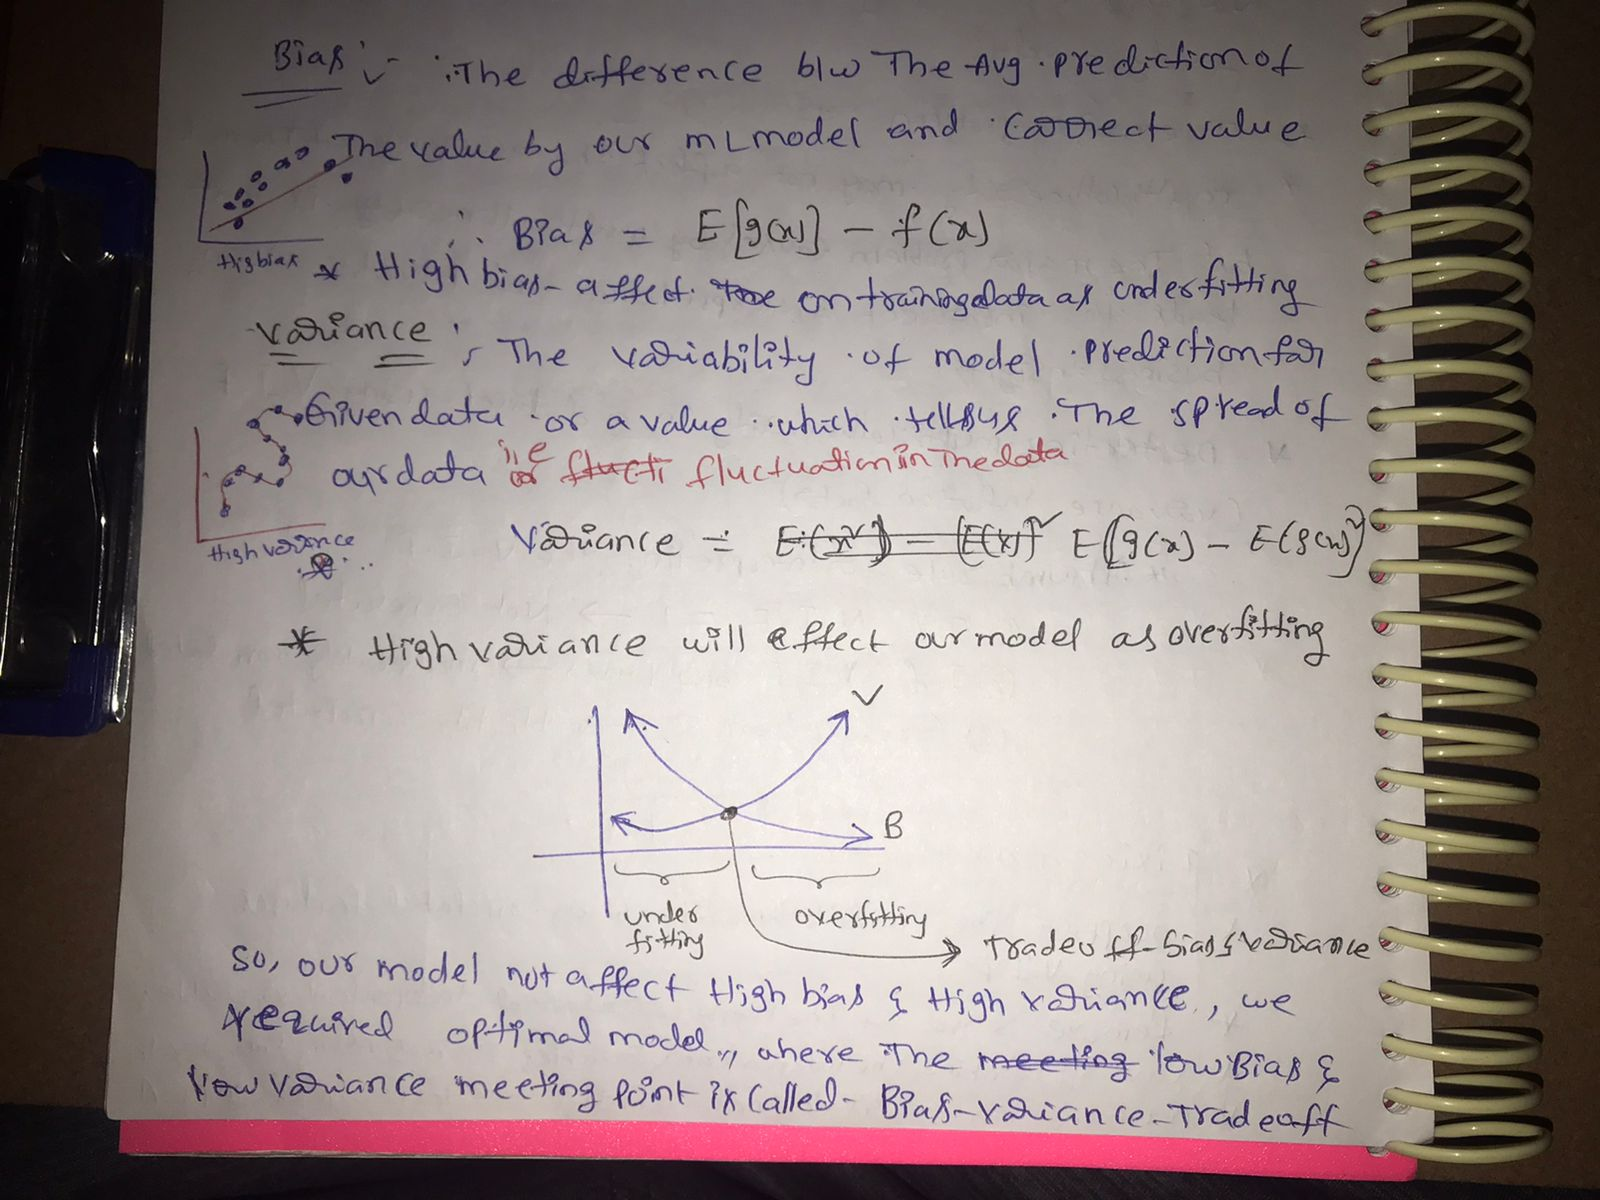 Bias :- ∴ The difference b/w The Avg. prediction of
The value by our ML model and correct value
∴ Bias = E[g(x)] - f(x)
High bias
* High bias - affect on training data as underfitting
Variance : The variability of model prediction for
Given data or a value which tells us The spread of
our data i.e fluctuation in The data
High variance
Variance = E(x²) - (E(x))² E[g(x) - E(g(x))²]
* High variance will effect our model as overfitting
V
B
under fitting
overfitting
Tradeoff - bias & variance
So, our model not affect High bias & High variance, we
required optimal model, where The meeting low Bias &
low variance meeting point is called - Bias-variance-Tradeoff